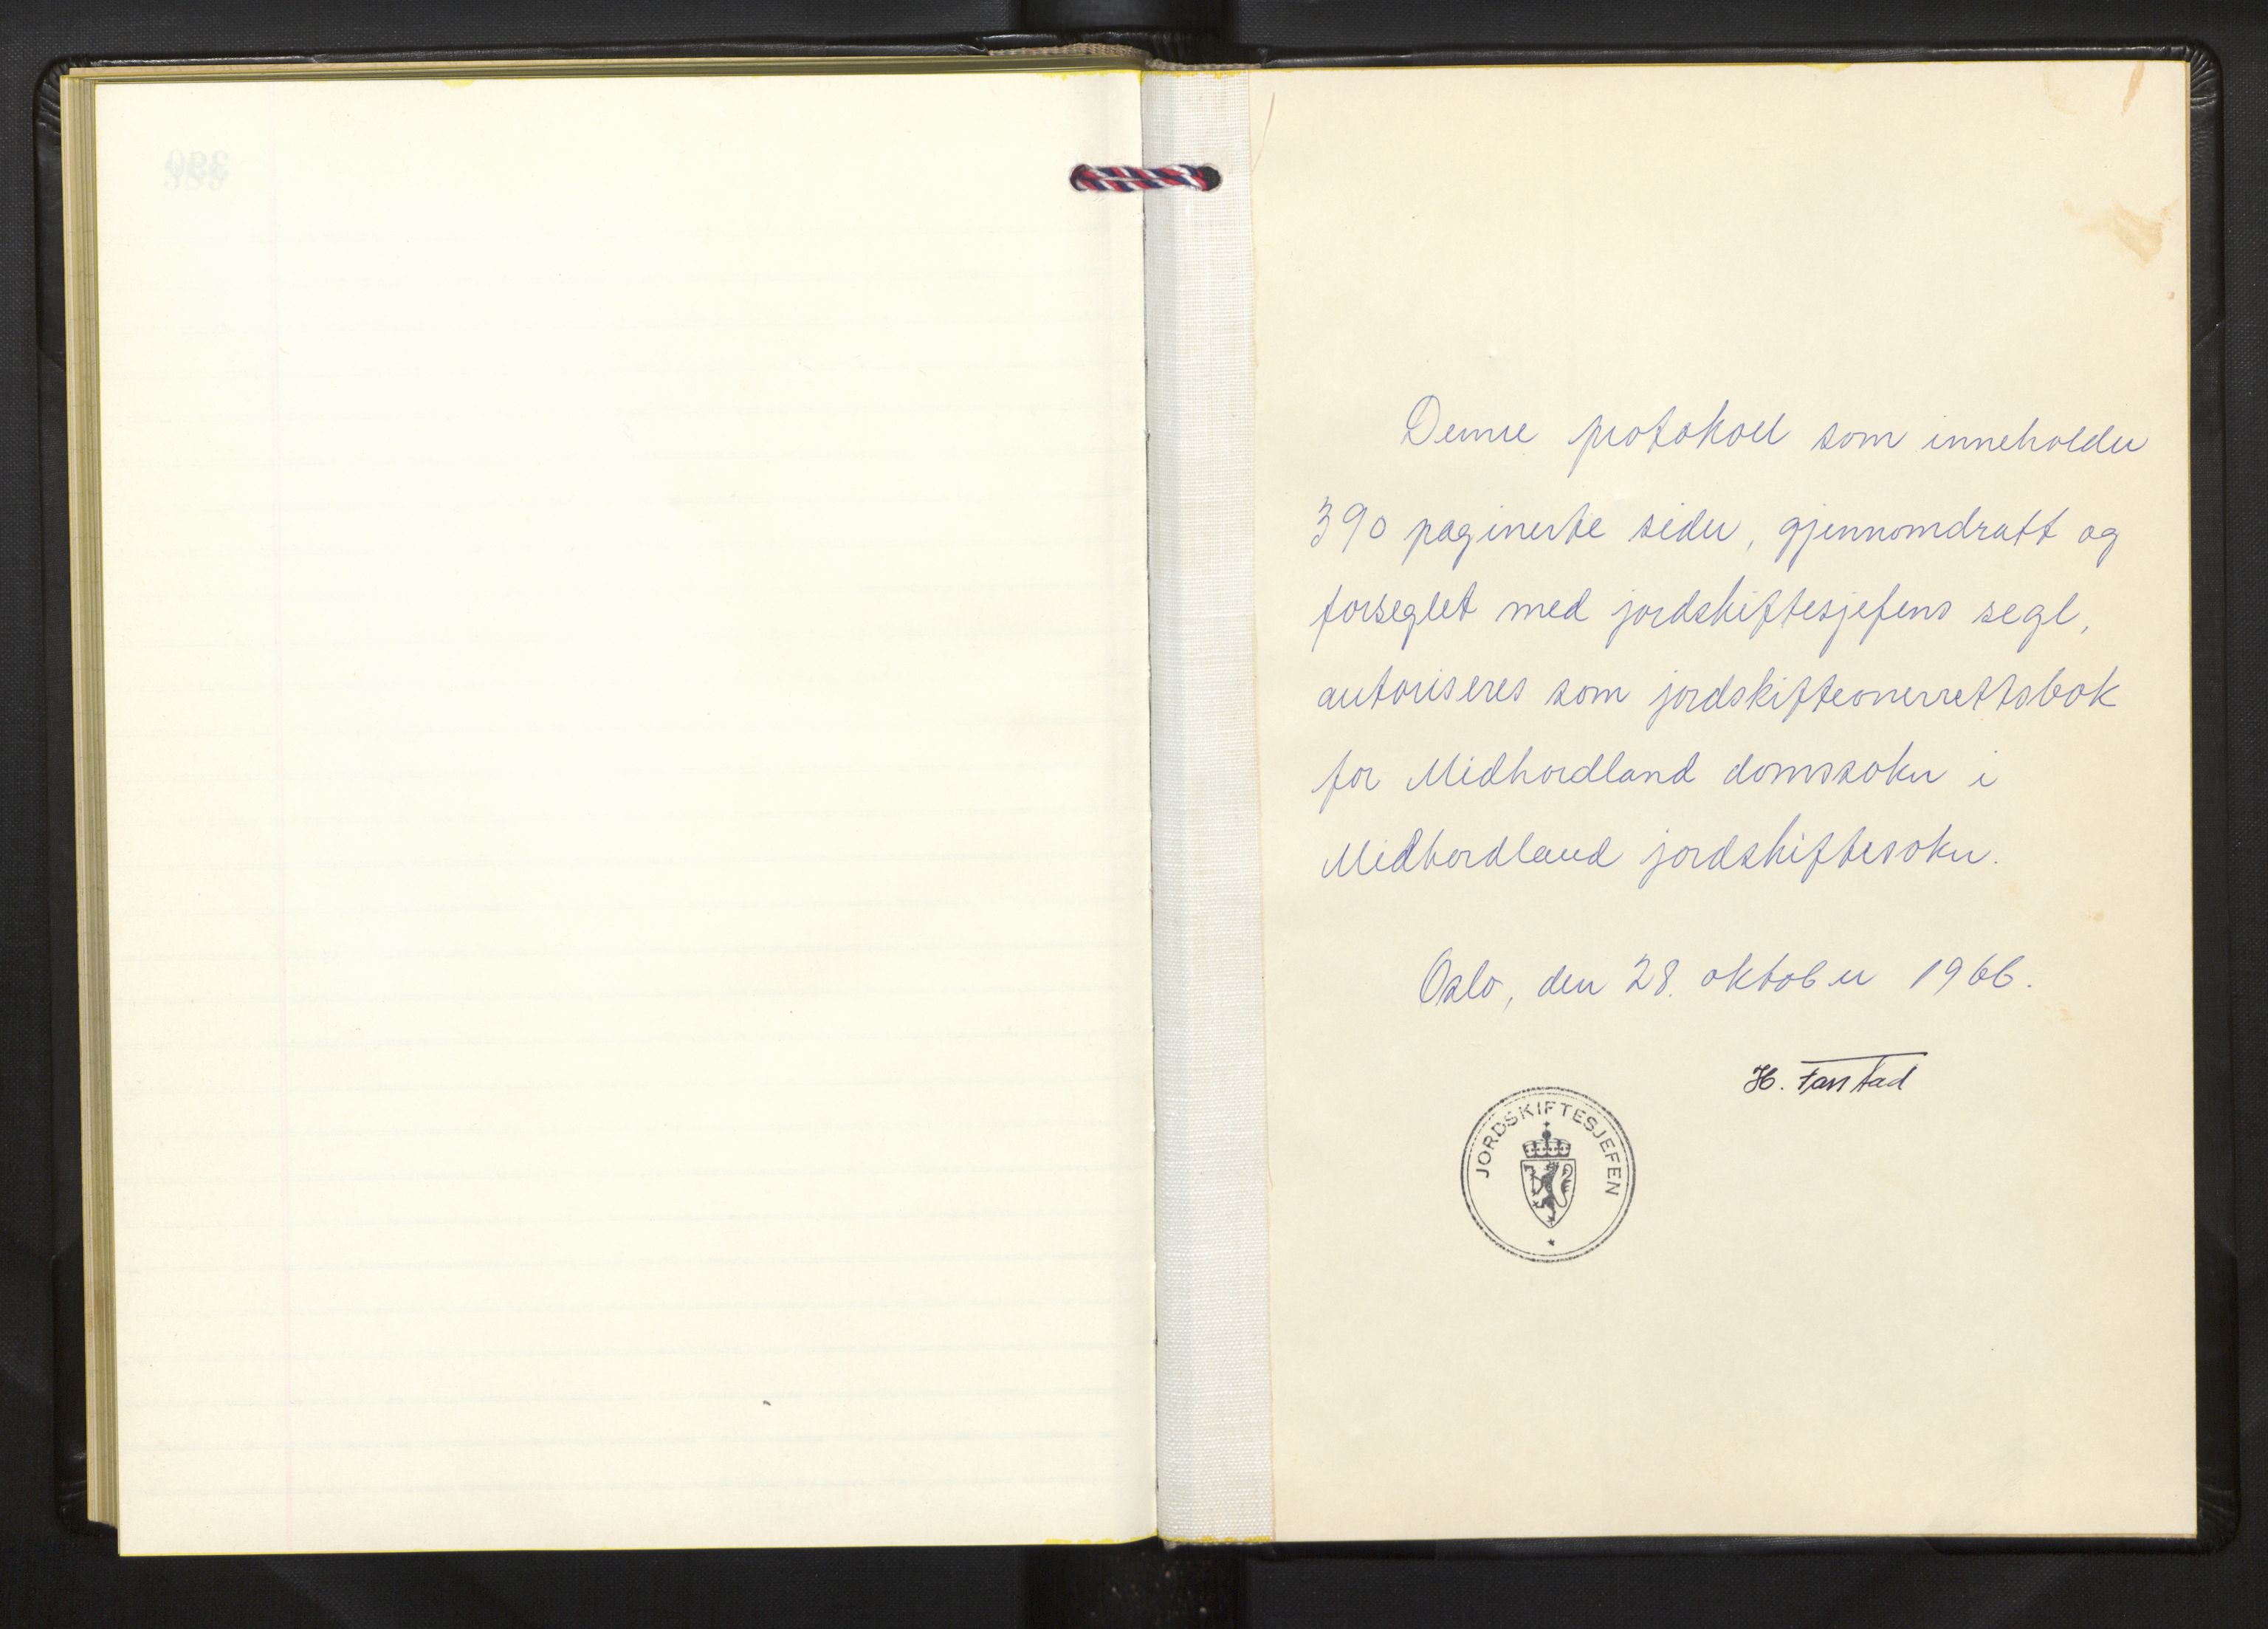 Denne protokoll som inneholder
390 paginerte sider, gjennomdratt og
forseglet med jordskiftesjefens segl,
autoriseres som jordskifteoverrettsbok
for Midhordland domssokn i
Midhordland jordskiftesokn.
Oslo, den 28. oktober 1966.
H.
JORDSKIFTESJEFEN